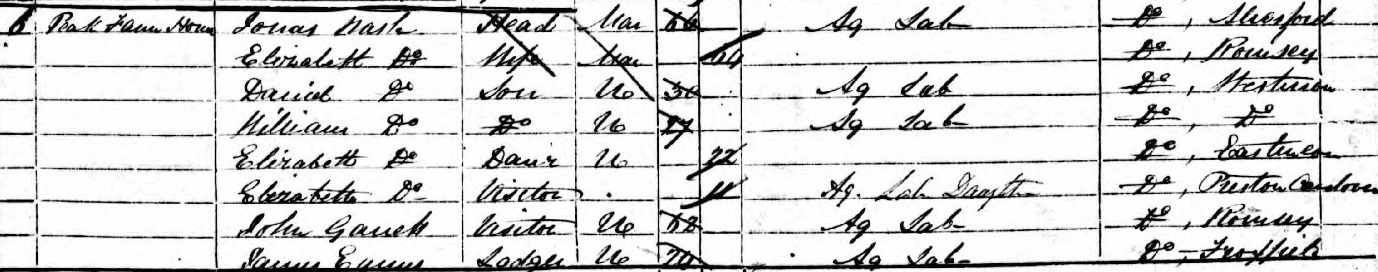 6 Peak Farm House Jonas Nash Head Mar 66 Ag Lab Do, Alresford
Elizabeth Do Wife Mar 64 Do, Romsey
Daniel Do Son U 30 Ag Lab Do,
William Do Do U 27 Ag Lab Do, Do
Elizabeth Do Daur U 22 Do,
Elizabeth Do Visitor 11 Ag. Lab Do, Preston Candover
John Visitor U 62 Ag Lab Do, Romsey
James Lodger U Ag Lab Do, Froxfield